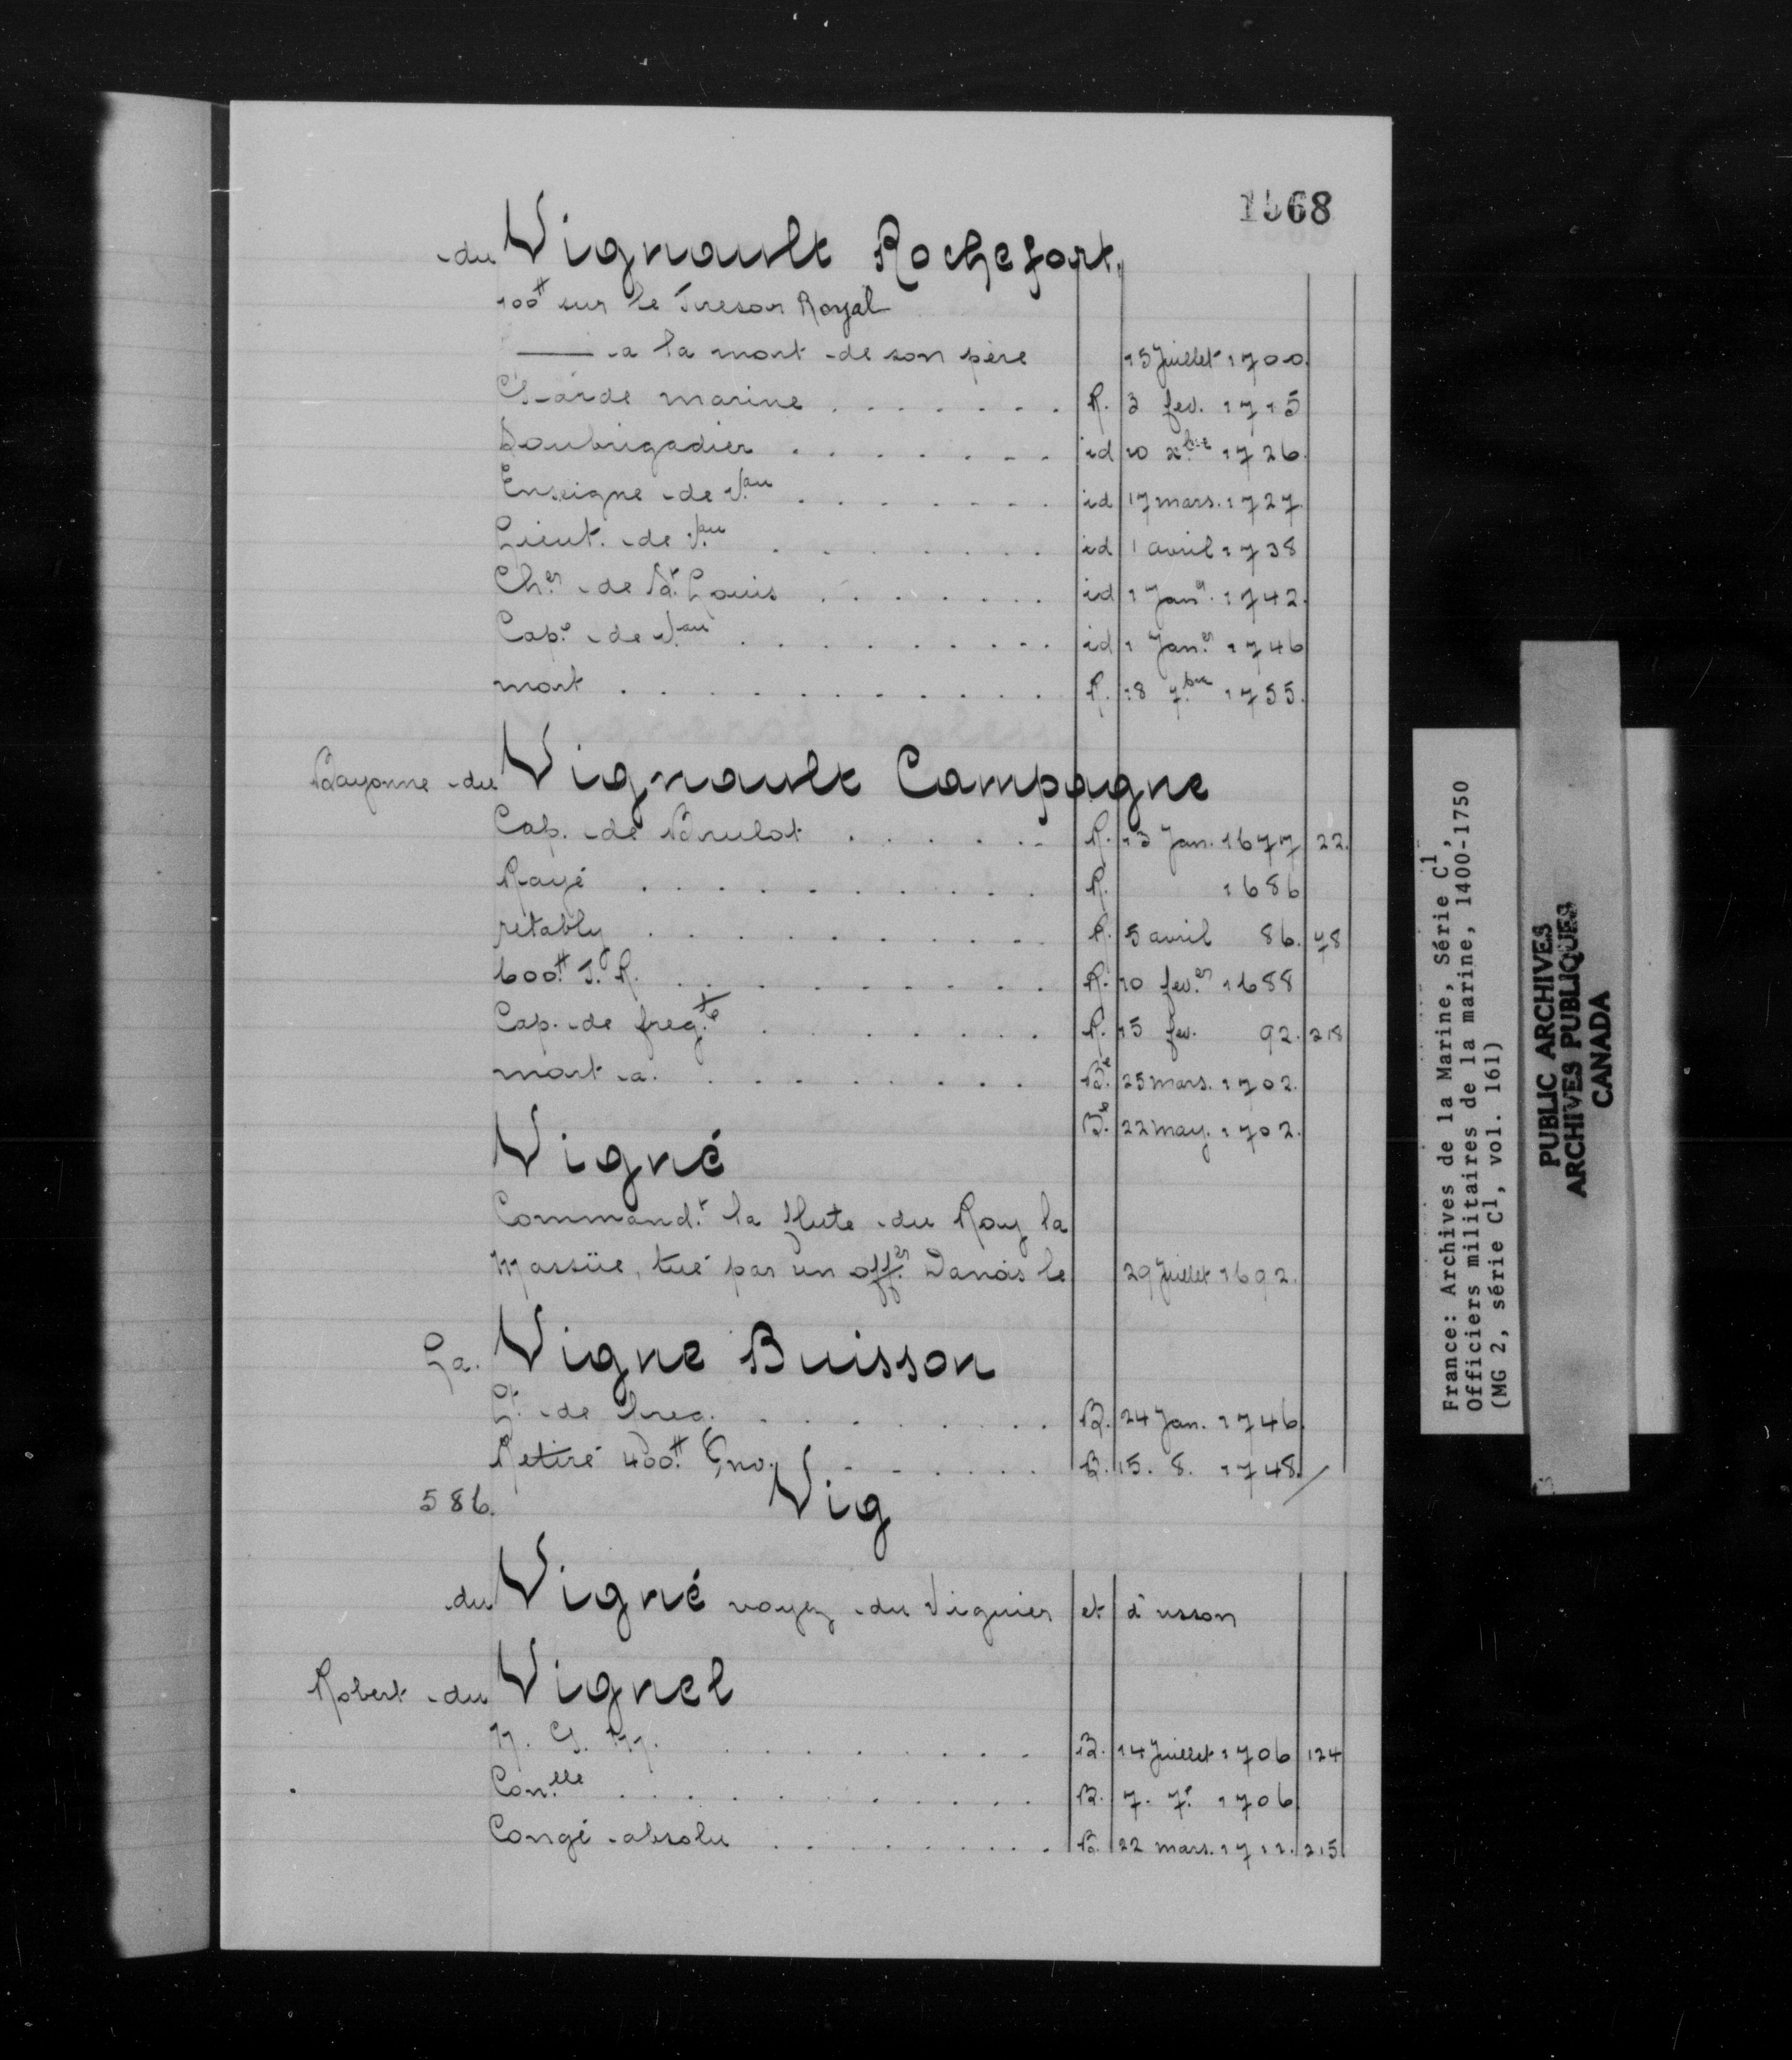 1568
du Vignault Rochefort.
100# sur le Tresor Royal
—— a la mort de son père 15 Juillet 1700.
Garde marine . . . . . . . R. 3 fev. 1715
Soubrigadier . . . . . . . id 10 xbre 1726.
Enseigne de Vau . . . . . . . id 17 mars. 1727.
Lieut. de Vau . . . . . . . id 1 avril 1738
Cher de St. Louis . . . . . . . id 1 Janer. 1742.
Cape de Vau . . . . . . . id 1 Janer 1746
mort . . . . . . . R. 18 7bre 1755.
Bayonne du Vignault Campagne
Cap. de Brulot . . . . . . R. 13 Jan. 1677 22.
Rayé . . . . . . . R. 1686
rétably . . . . . . . R. 5 avril 86. 78
600# T. R. . . . . . . . R. 10 fever 1688
Cap. de fregte . . . . . . . R. 15 fev. 92. 218
mort a. . . . . . . Bt. 25 mars. 1702.
Bt. 22 may. 1702.
Vigné
Commandt la flute du Roy la
Massüe, tué par un offer Danois le 29 Juillet 1692.
La. Vigne Buisson
Lt. de freg. . . . . . . . B. 24 Jan. 1746.
Retiré 400# Inv. . . . . . . B. 15. 8. 1748.
586. Vig
du Vigné voyez du Viguier et d'usson
Robert du Vignel
N. G. M. . . . . . . . B. 14 Juillet 1706 124
Conlle . . . . . . . B. 7. 7e 1706.
Congé absolu . . . . . . . B. 22 mars. 1712. 215
France: Archives de la Marine, Série C1,
Officiers militaires de la marine, 1400-1750
(MG 2, série C1, vol. 161)
PUBLIC ARCHIVES
ARCHIVES PUBLIQUES
CANADA